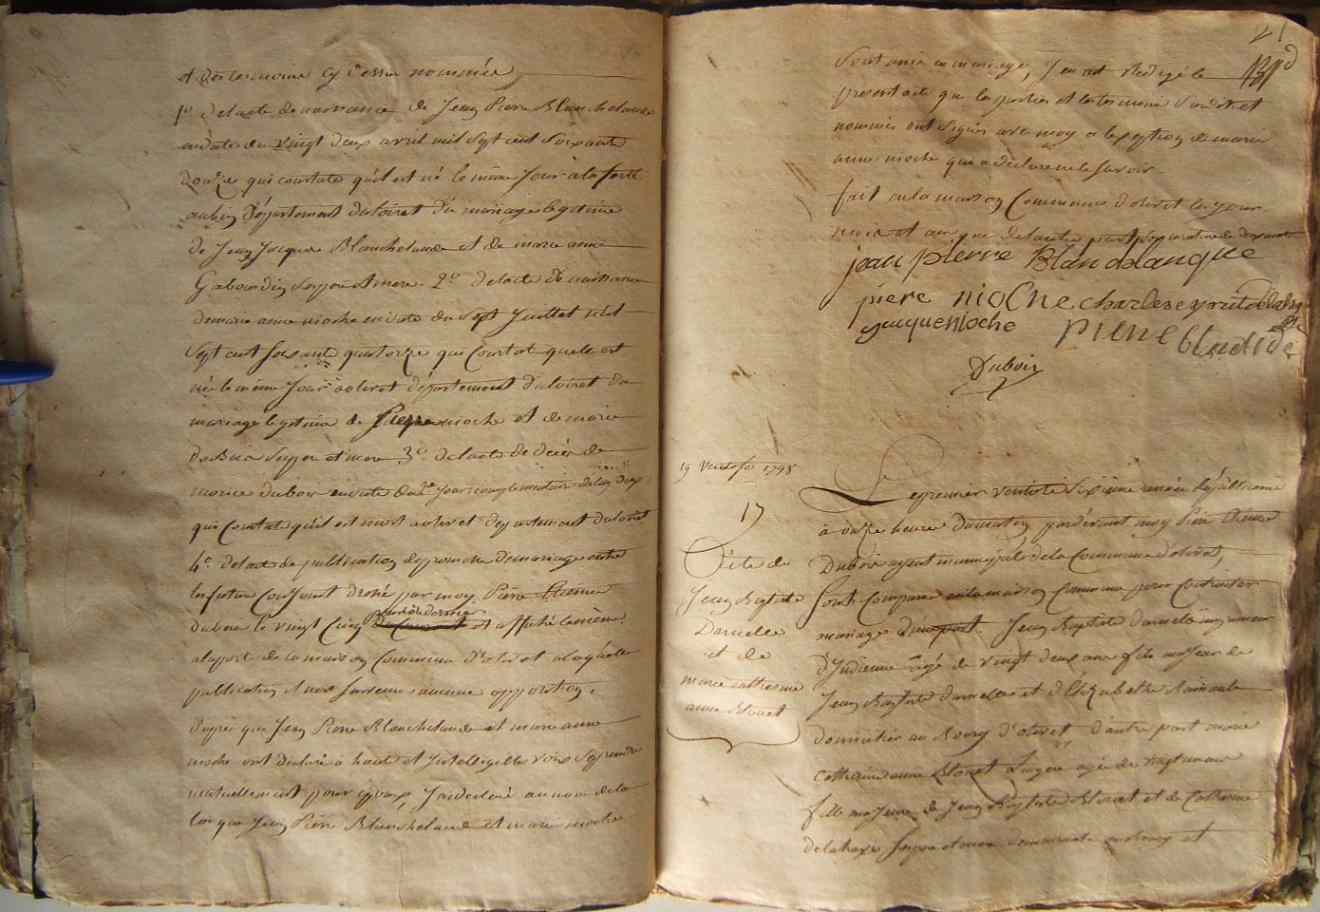 et des temoins cy dessus nommés
1º de lacte de naissance de Jean Pierre Blanchelande
en date du vingt deux avril mil sept cent soixante
douze qui constate quil est né le même Jour à la ferté
aubin département du loiret du mariage legitime
de Jean Jacques Blanchelande et de marie anne
Gabourdin ses pere et mere 2º de lacte de naissance
de marie anne nioche en date du sept Juillet mil
sept cent soixante quatorze qui constate quelle est
née le même Jour a olivet département du loiret du
mariage legitime de Pierre nioche et de marie
duBois ses pere et mere 3º de lacte de décès de
marie dubois en date du
qui constate quil est mort a olivet departement du loiret
4º de lacte de publication de promesse de mariage entre
les futurs Conjoints dressé par moy Pierre Etienne
dubois le vingt Cinq et affiché le même
a la porte de la maison Commune d'olivet a laquelle
publication il nest survenu aucune opposition,
après que Jean Pierre Blanchelande et marie anne
nioche ont declaré a haute et Intelligible voix se prendre
mutuellement pour epoux, J'ai declaré au nom de la
loi que Jean Pierre Blanchelande et marie nioche
Sont unis en mariage, J'en ait redigé le
present acte que les parties et les temoins susdit et
nommés ont signés avec moy a lexception de marie
anne nioche qui a declaré ne le savoir.
fait en la maison Commune d'olivet les jour
mois et an que de lautre part
jean pierre Blanchlanque
piere nioche charles
jacque nioche piere
Dubois
19 Ventose 1798
17
Acte de
Jean Baptiste
Darnelle
et de
marie catherine
anne Blouet
Le premier ventose sixieme année Republicaine
à onze heures du matin, pardevant moy Pierre Etienne
Dubois agent municipal de la Commune d'olivet,
Sont Comparus en la maison Commune pour Contracter
mariage d'une part Jean Baptiste Darnelle imprimeur
d'Indienne agé de vingt deux ans fils majeur de
Jean Baptiste Darnelle et d'Elizabethe
domiciliés au Bourg d'olivet d'autre part marie
catherine anne Blouet Lingere agée de vingt un ans
fille majeure de Jean Baptiste Blouet et de Catherine
delahaye ses pere et mere demeurante au Bourg et